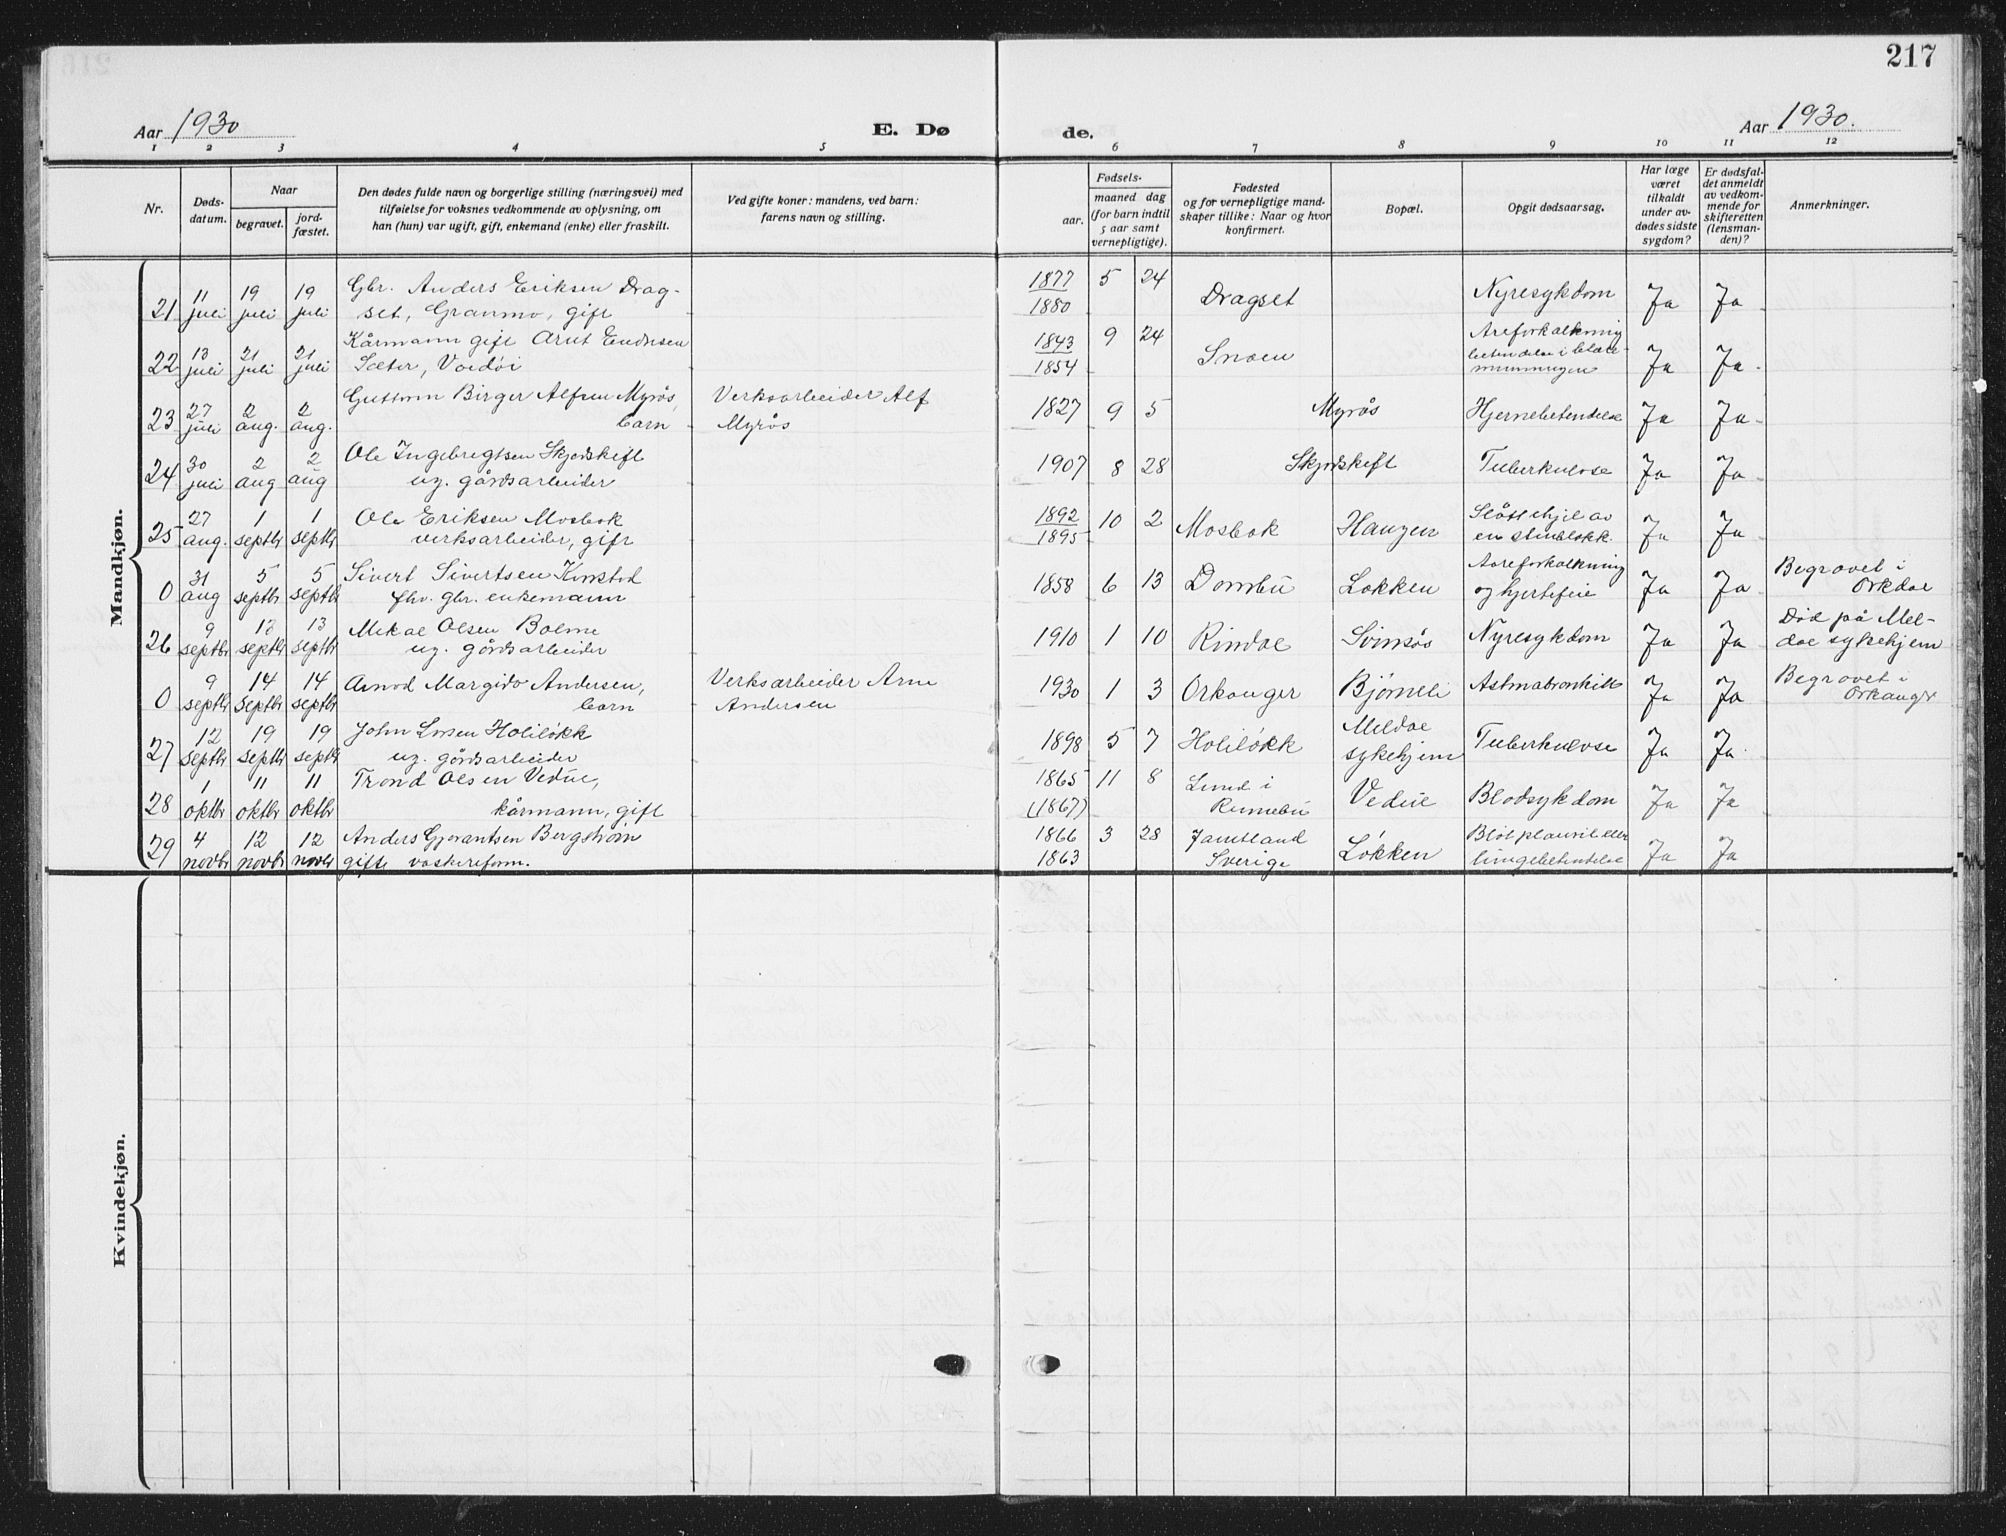 217
Aar 1930 E. Dø de. Aar 1930.
1 2 3 4 5 6 7 8 9 10 11 12
Nr.
Døds-
datum.
Naar
begravet.
jord-
fæstet.
Den dødes fulde navn og borgerlige stilling (næringsvei) med
tilføielse for voksnes vedkommende av oplysning, om
han (hun) var ugift, gift, enkemand (enke) eller fraskilt.
Ved gifte koner: mandens, ved barn:
farens navn og stilling.
Fødsels-
aar.
maaned dag
(for barn indtil
5 aar samt
vernepligtige).
Fødested
og for vernepligtige mand-
skaper tillike: Naar og hvor
konfirmert.
Bopæl.
Opgit dødsaarsag.
Har læge
været
tilkaldt
under av-
dødes sidste
sygdom?
Er dødsfal-
det anmeldt
av vedkom-
mende for
skifteretten
(lensman-
den)?
Anmerkninger.
Mandkjøn.
11 19 19 Gbr. Anders Eriksen Drag- 1877 5 24 Nyresykdom
21 juli juli juli set, Granmo, gift 1880 Dragset Ja Ja
13 21 21 Kårmann gift Arnt Endresen 1843 9 24 Areforkalkning
22 juli juli juli Sæter, 1854 Snoen betendelse i Ja Ja
27 2 2 Birger Alfsen Myrøs, Verksarbeider Alf 1827 9 5 Myrøs Hjernebetendelse
23 juli aug. aug. barn Myrøs Ja Ja
30 2 2 Ole Ingebregtsen Skjødskift 1907 8 28 Skjødskift Tuberkulose
24 juli aug aug ug. gårdsarbeider Ja Ja
27 1 1 Ole Eriksen Mosbak 1892 10 2 Mosbak Haugen Slått ihjel av
25 aug. septbr septbr verksarbeider, gift 1895 en stenblokk. Ja Ja
31 5 5 Sivert Sivertsen 1858 6 13 Dombu Løkken Aareforkalkning Begravet i
0 aug septbr septbr fhv. gbr. enkemann og hjertefeil Ja Ja Orkdal
9 13 13 Mikal Olsen Bolme 1910 1 10 Rindal Svinsås Nyresykdom Død på Mel-
26 septbr septbr septbr ug. gårdsarbeider Ja Ja dal sykehjem
9 14 14 Arnod Margido Andersen, Verksarbeider Arne 1930 1 3 Orkanger Bjørnli Astmabronkitt Begravet i
0 septbr septbr septbr barn Andersen Ja Ja Orkanger
12 19 19 John Larsen Holiløkk 1898 5 7 Holiløkk Meldal
27 septbr septbr septbr ug. gårdsarbeider sykehjem Tuberkulose Ja Ja
1 11 11 Trond Olsen Vedul, 1865 11 8 Lund i
28 oktbr oktbr oktbr kårmann, gift (1867) Rennebu Vedul Blodsykdom Ja Ja
4 12 12 Anders Gjørantsen Bergstrøm 1866 3 28 Jamtland Bløt plaurit eller
29 novbr novbr novbr gift vaskereform. 1863 Sverige Løkken lungebetendelse Ja Ja
Kvindekjøn.